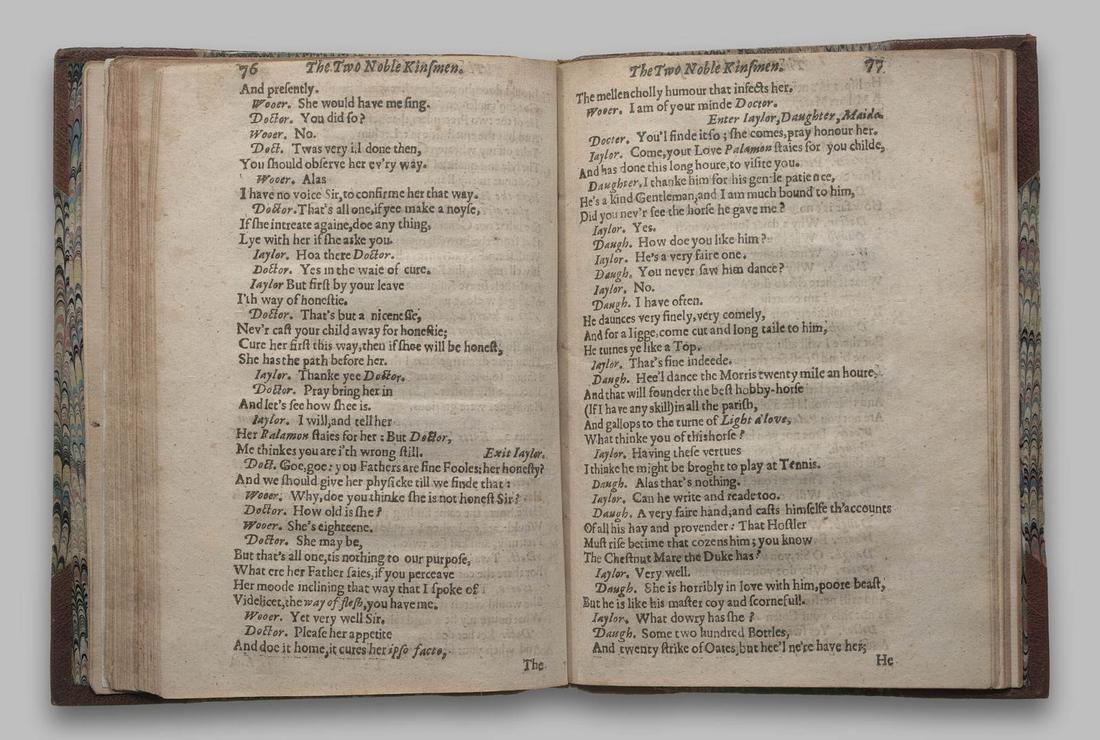 76 The Two Noble Kinſmen.
And preſently.
Wooer. She would have me ſing.
Doctor. You did ſo?
Wooer. No.
Doct. Twas very ill done then,
You ſhould obſerve her ev'ry way.
Wooer. Alas
I have no voice Sir, to confirme her that way.
Doctor. That's all one, if yee make a noyſe,
If ſhe intreate againe, doe any thing,
Lye with her if ſhe aske you.
Iaylor. Hoa there Doctor.
Doctor. Yes in the waie of cure.
Iaylor But firſt by your leave
I'th way of honeſtie.
Doctor. That's but a niceneſſe,
Nev'r caſt your child away for honeſtie;
Cure her firſt this way, then if ſhoe will be honeſt,
She has the path before her.
Iaylor. Thanke yee Doctor.
Doctor. Pray bring her in
And let's ſee how ſhee is.
Iaylor. I will, and tell her
Her Palamon ſtaies for her: But Doctor,
Me thinkes you are i'th wrong ſtill. Exit Iaylor.
Doct. Goe, goe: you Fathers are fine Fooles: her honeſty?
And we ſhould give her phyſicke till we finde that:
Wooer. Why, doe you thinke ſhe is not honeſt Sir?
Doctor. How old is ſhe?
Wooer. She's eighteene.
Doctor. She may be,
But that's all one, tis nothing to our purpoſe,
What ere her Father ſaies, if you perceave
Her moode inclining that way that I ſpoke of
Videlicet, the way of fleſh, you have me.
Wooer. Yet very well Sir.
Doctor. Pleaſe her appetite
And doe it home, it cures her ipſo facto,
The
The Two Noble Kinſmen. 77
The mellencholly humour that infects her.
Wooer. I am of your minde Doctor.
Enter Iaylor, Daughter, Maide.
Docter. You'l finde it ſo; ſhe comes, pray honour her.
Iaylor. Come, your Love Palamon ſtaies for you childe,
And has done this long houre, to viſite you.
Daughter. I thanke him for his gentle patience,
He's a kind Gentleman, and I am much bound to him,
Did you nev'r ſee the horſe he gave me?
Iaylor. Yes.
Daugh. How doe you like him?
Iaylor. He's a very faire one.
Daugh. You never ſaw him dance?
Iaylor. No.
Daugh. I have often.
He daunces very finely, very comely,
And for a Iigge, come cut and long taile to him,
He turnes ye like a Top.
Iaylor. That's fine indeede.
Daugh. Hee'l dance the Morris twenty mile an houre,
And that will founder the beſt hobby-horſe
(If I have any skill) in all the pariſh,
And gallops to the turne of Light a'love,
What thinke you of this horſe?
Iaylor. Having theſe vertues
I thinke he might be broght to play at Tennis.
Daugh. Alas that's nothing.
Iaylor. Can he write and reade too.
Daugh. A very faire hand, and caſts himſelfe th'accounts
Of all his hay and provender: That Hoſtler
Muſt riſe betime that cozens him; you know
The Cheſtnut Mare the Duke has?
Iaylor. Very well.
Daugh. She is horribly in love with him, poore beaſt,
But he is like his maſter coy and ſcornefull.
Iaylor. What dowry has ſhe?
Daugh. Some two hundred Bottles,
And twenty ſtrike of Oates, but hee'l ne're have her;
He